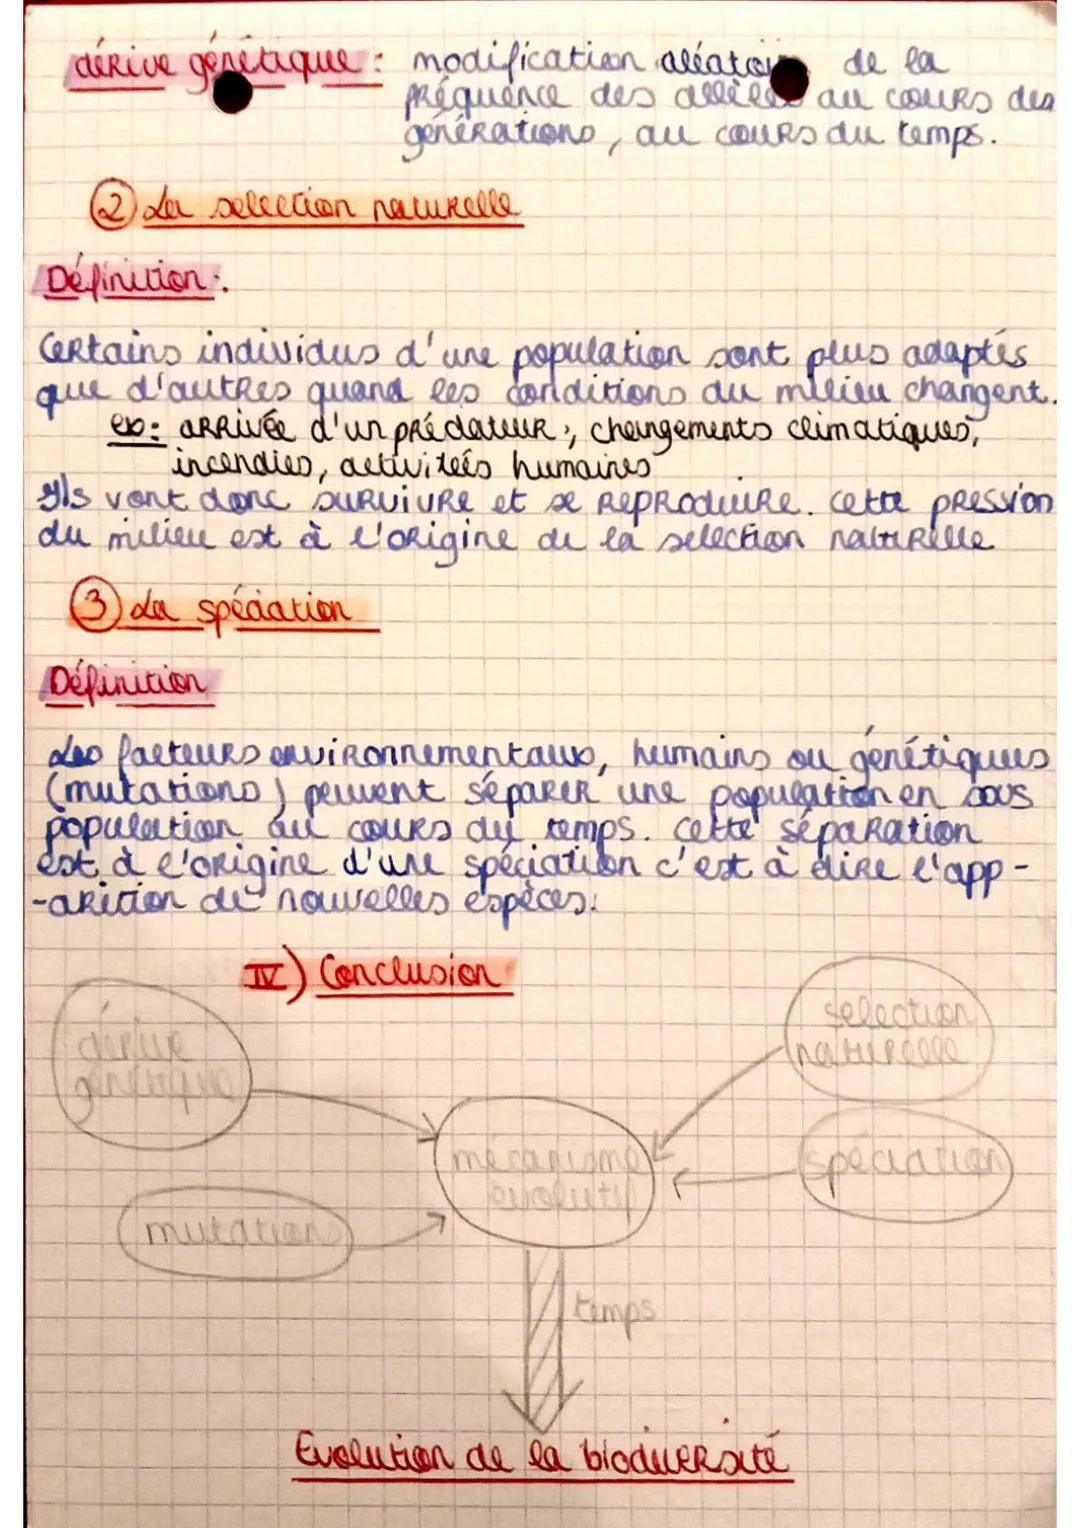 dérive génétique : modification aléatoire de la
fréquence des allèles au cours des
générations, au cours du temps.
② La selection naturelle
Définition :
Certains individus d'une population sont plus adaptés
que d'autres quand les conditions du milieu changent.
ex : arrivée d'un prédateur, changements climatiques,
incendies, activiteés humaines
Ils vont donc survivre et se reproduire. Cette pression
du milieu est à l'origine de la selection naturelle
③ La spéciation
Définition
Les facteurs environnementaux, humains ou génétiques
(mutations) peuvent séparer une population en sous
population au cours du temps. Cette séparation
est à l'origine d'une spéciation c'est à dire l'app-
-arition de nouvelles espèces.
IV) Conclusion
dérive
génétique
selection
naturelle
mécanisme
évolutif
spéciation
mutations
temps
Evolution de la biodiversité